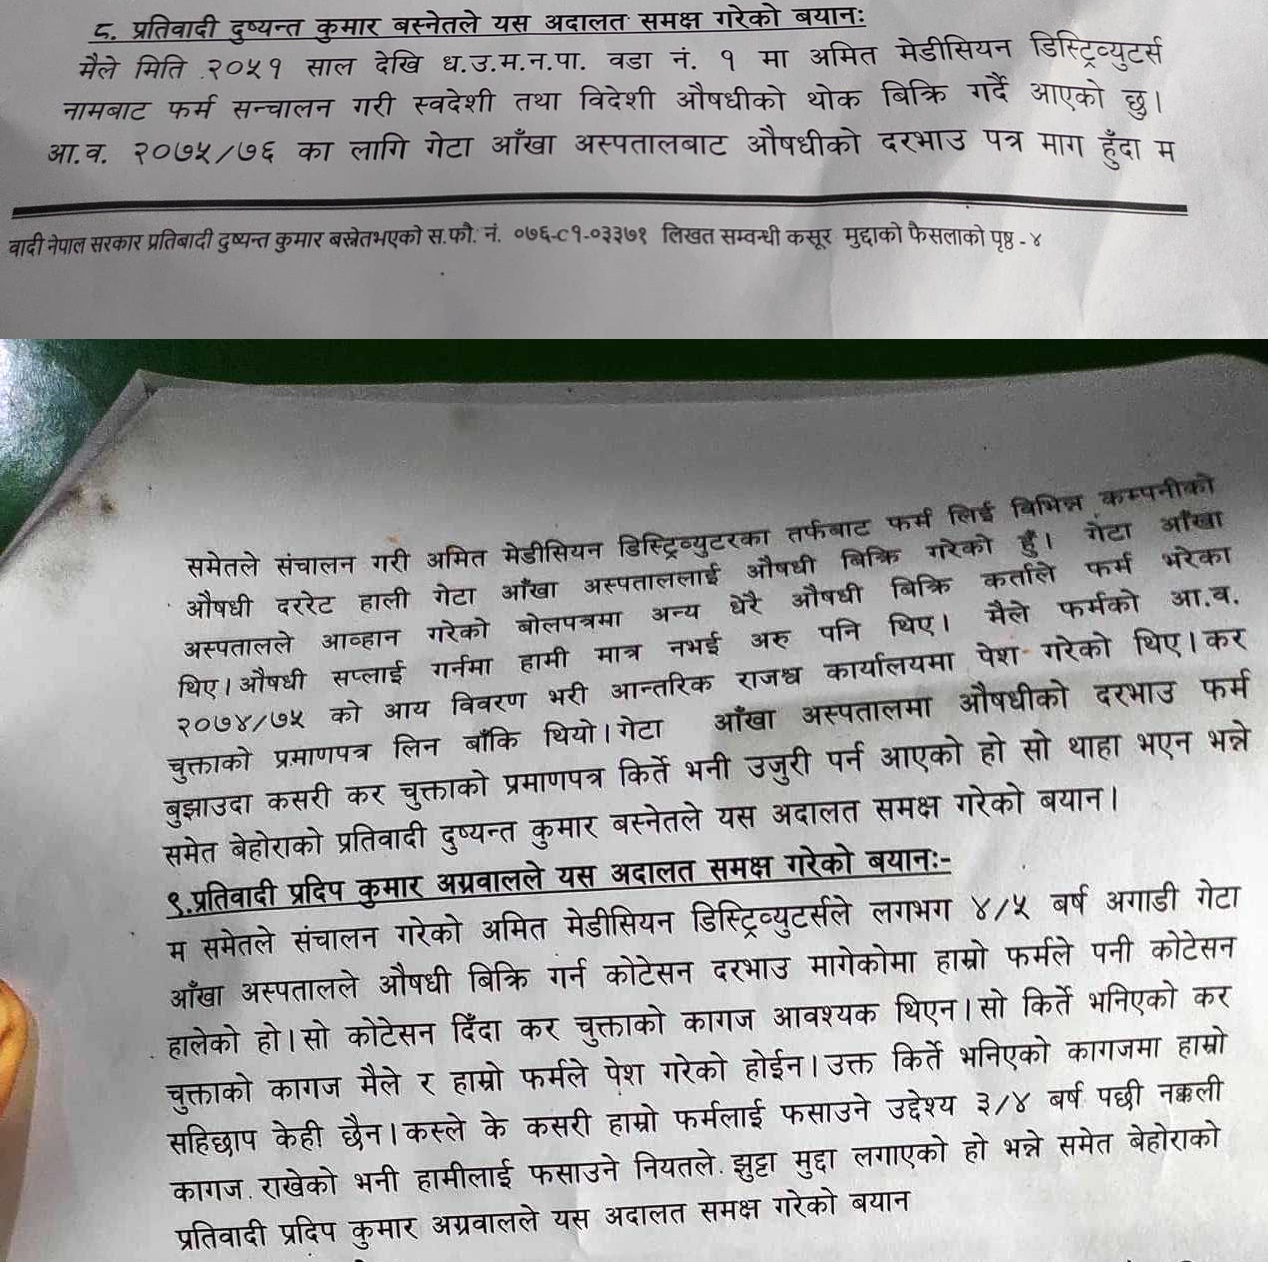 ८. प्रतिवादी दुष्यन्त कुमार बस्नेतले यस अदालत समक्ष गरेको बयानः
मैले मिति २०५१ साल देखि ध.उ.म.न.पा. वडा नं. १ मा अमित मेडीसियन डिस्ट्रिव्युटर्स
नामबाट फर्म सन्चालन गरी स्वदेशी तथा विदेशी औषधीको थोक बिक्रि गर्दै आएको छु।
आ.व. २०७५/७६ का लागि गेटा आँखा अस्पतालबाट औषधीको दरभाउ पत्र माग हुँदा म
वादी नेपाल सरकार प्रतिबादी दुष्यन्त कुमार बस्नेतभएको स.फौ. नं. ०७६-C१-०३३७१ लिखत सम्वन्धी कसूर मुद्दाको फैसलाको पृष्ठ - ४
समेतले संचालन गरी अमित मेडीसियन डिस्ट्रिव्युटरका तर्फबाट फर्म लिई बिभिन्न कम्पनीको
औषधी दररेट हाली गेटा आँखा अस्पताललाई औषधी बिक्रि गरेको हुँ। गेटा आँखा
अस्पतालले आव्हान गरेको बोलपत्रमा अन्य धेरै औषधी बिक्रि कर्ताले फर्म भरेका
थिए। औषधी सप्लाई गर्नमा हामी मात्र नभई अरु पनि थिए। मैले फर्मको आ.व.
२०७४/७५ को आय विवरण भरी आन्तरिक राजश्व कार्यालयमा पेश गरेको थिए। कर
चुक्ताको प्रमाणपत्र लिन बाँकि थियो। गेटा आँखा अस्पतालमा औषधीको दरभाउ फर्म
बुझाउदा कसरी कर चुक्ताको प्रमाणपत्र किर्ते भनी उजुरी पर्न आएको हो सो थाहा भएन भन्ने
समेत बेहोराको प्रतिवादी दुष्यन्त कुमार बस्नेतले यस अदालत समक्ष गरेको बयान।
९.प्रतिवादी प्रदिप कुमार अग्रवालले यस अदालत समक्ष गरेको बयानः-
म समेतले संचालन गरेको अमित मेडीसियन डिस्ट्रिव्युटर्सले लगभग ४/५ बर्ष अगाडी गेटा
आँखा अस्पतालले औषधी बिक्रि गर्न कोटेसन दरभाउ मागेकोमा हाम्रो फर्मले पनी कोटेसन
हालेको हो। सो कोटेसन दिँदा कर चुक्ताको कागज आवश्यक थिएन। सो किर्ते भनिएको कर
चुक्ताको कागज मैले र हाम्रो फर्मले पेश गरेको होईन। उक्त किर्ते भनिएको कागजमा हाम्रो
सहिछाप केही छैन। कस्ले के कसरी हाम्रो फर्मलाई फसाउने उद्देश्य ३/४ बर्ष पछी नक्कली
कागज राखेको भनी हामीलाई फसाउने नियतले झुट्टा मुद्दा लगाएको हो भन्ने समेत बेहोराको
प्रतिवादी प्रदिप कुमार अग्रवालले यस अदालत समक्ष गरेको बयान